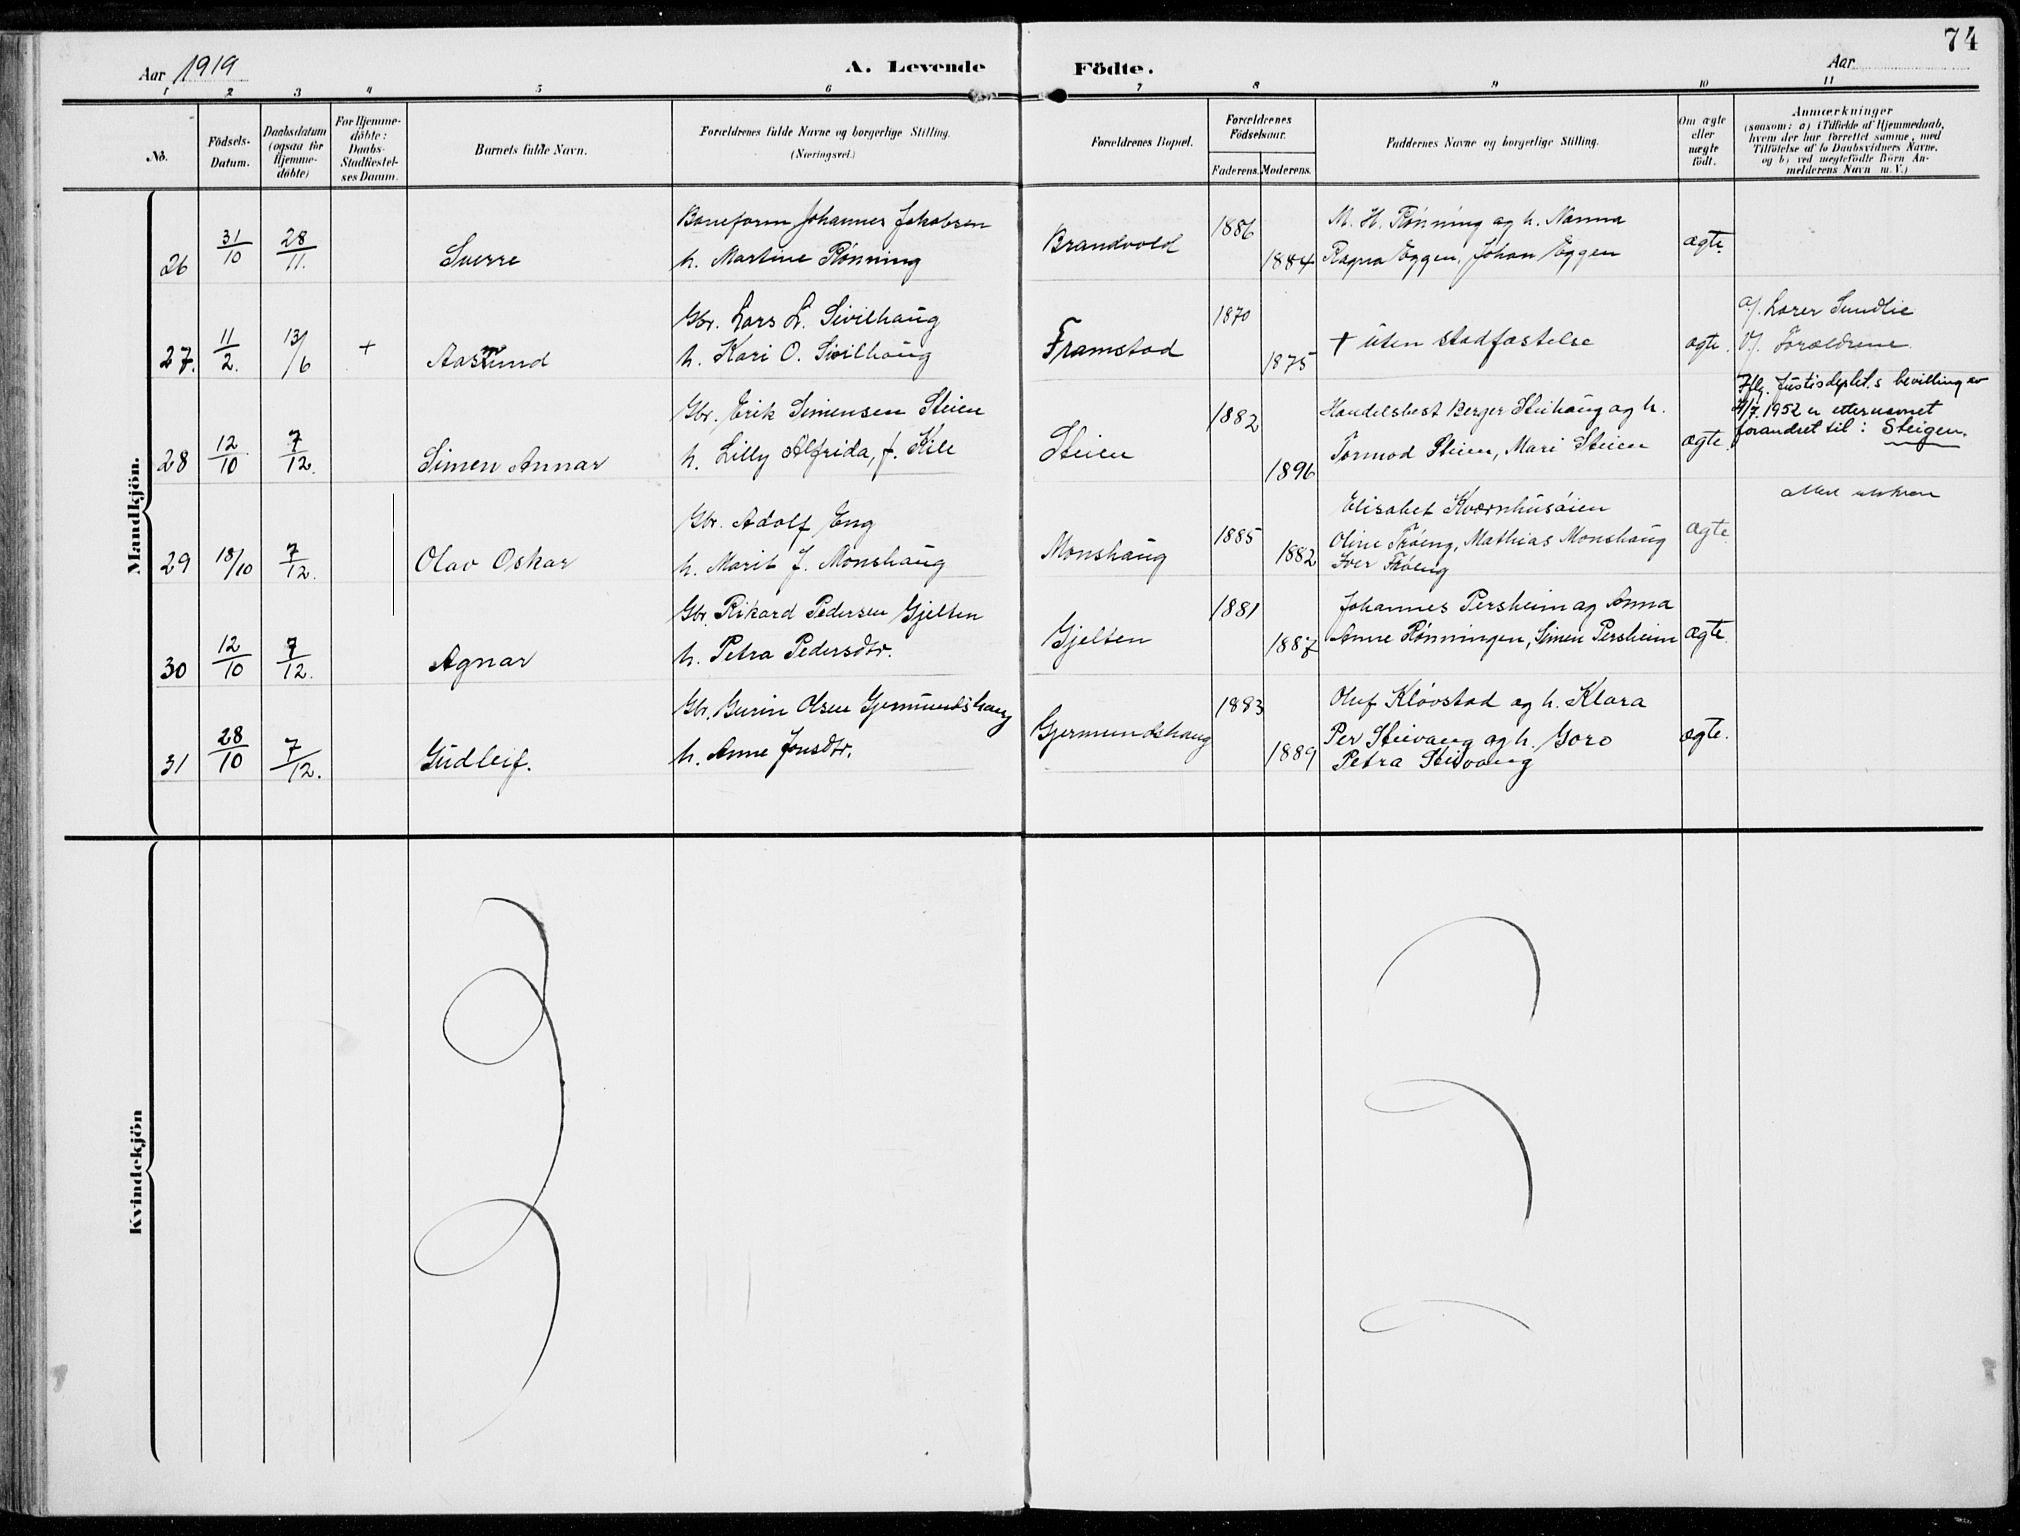 74
Aar 1919
A. Levende Födte.
Aar
1 2 3 4 5 6 7 8 9 10 11
No.
Födsels-
Datum.
Daabsdatum
(ogsaa for
Hjemme-
döbte)
For Hjemme-
döbte:
Daabs-
Stadfæstel-
ses Datum.
Barnets fulde Navn.
Forældrenes fulde Navne og borgerlige Stilling.
(Næringsvei.)
Forældrenes Bopæl.
Forældrenes
Födselsaar.
Faderens. Moderens.
Faddernes Navne og borgerlige Stilling.
Om ægte
eller
uægte
födt.
Anmærkninger
(saasom: a) i Tilfælde af Hjemmedaab,
hvem der har forrettet samme, med
Tilföielse af to Daabsvidners Navne,
og b) ved uægtefödte Börn An-
melderens Navn m. V.)
Mandkjön.
26 31/10 28/11. Sverre
Baneform Johannes Jakobsen
h. Martine Rønning
Brandvold
1886
1884
M. H. Rønning og h. Nanna
Ragna Eggen, Johan Eggen
ægte.
27. 11/2. 13/6 + Aasmund
Gbr. Lars L. Sivilhaug
h. Kari O. Sivilhaug
Framstad
1870
1875
+ uten stadfæstelse
ægte.
a/. Lærer Sundlie
V/. Forældrene.
28 12/10 7/12. Simen Annar
Gbr. Erik Simensen Steien
h. Lilly Alfrida, f. Kile
Steien
1882
1896
Handelsbest Berger Steihaug og h.
Tormod Steien, Mari Steien
ægte.
Iflg. Justisdeptet.s bevilling av
4/7. 1952 er etternavnet
forandret til: Steigen.
29 18/10 7/12. Olav Oskar
Gbr. Adolf Eng
h. Marit J. Monshaug
Monshaug
1885
1882
Elisabet Kværnhusøien
Oline Trøeng, Mathias Monshaug
Iver Trøeng
ægte.
30 12/10 7/12. Agnar
Gbr. Rikard Pedersen Gjelten
h. Petra Pedersdtr.
Gjelten
1881
1887
Johannes Persheim og Anna
Anne Rønningen, Simen Persheim
ægte.
31 28/10 7/12. Gudleif.
Gbr. Olsen Gjermundshaug
h. Anne Jonsdtr.
Gjermundshaug
1883
1889
Oluf Kløvstad og h. Klara
Per Steivang og h. Goro
Petra Steivang
ægte.
Kvindekjön